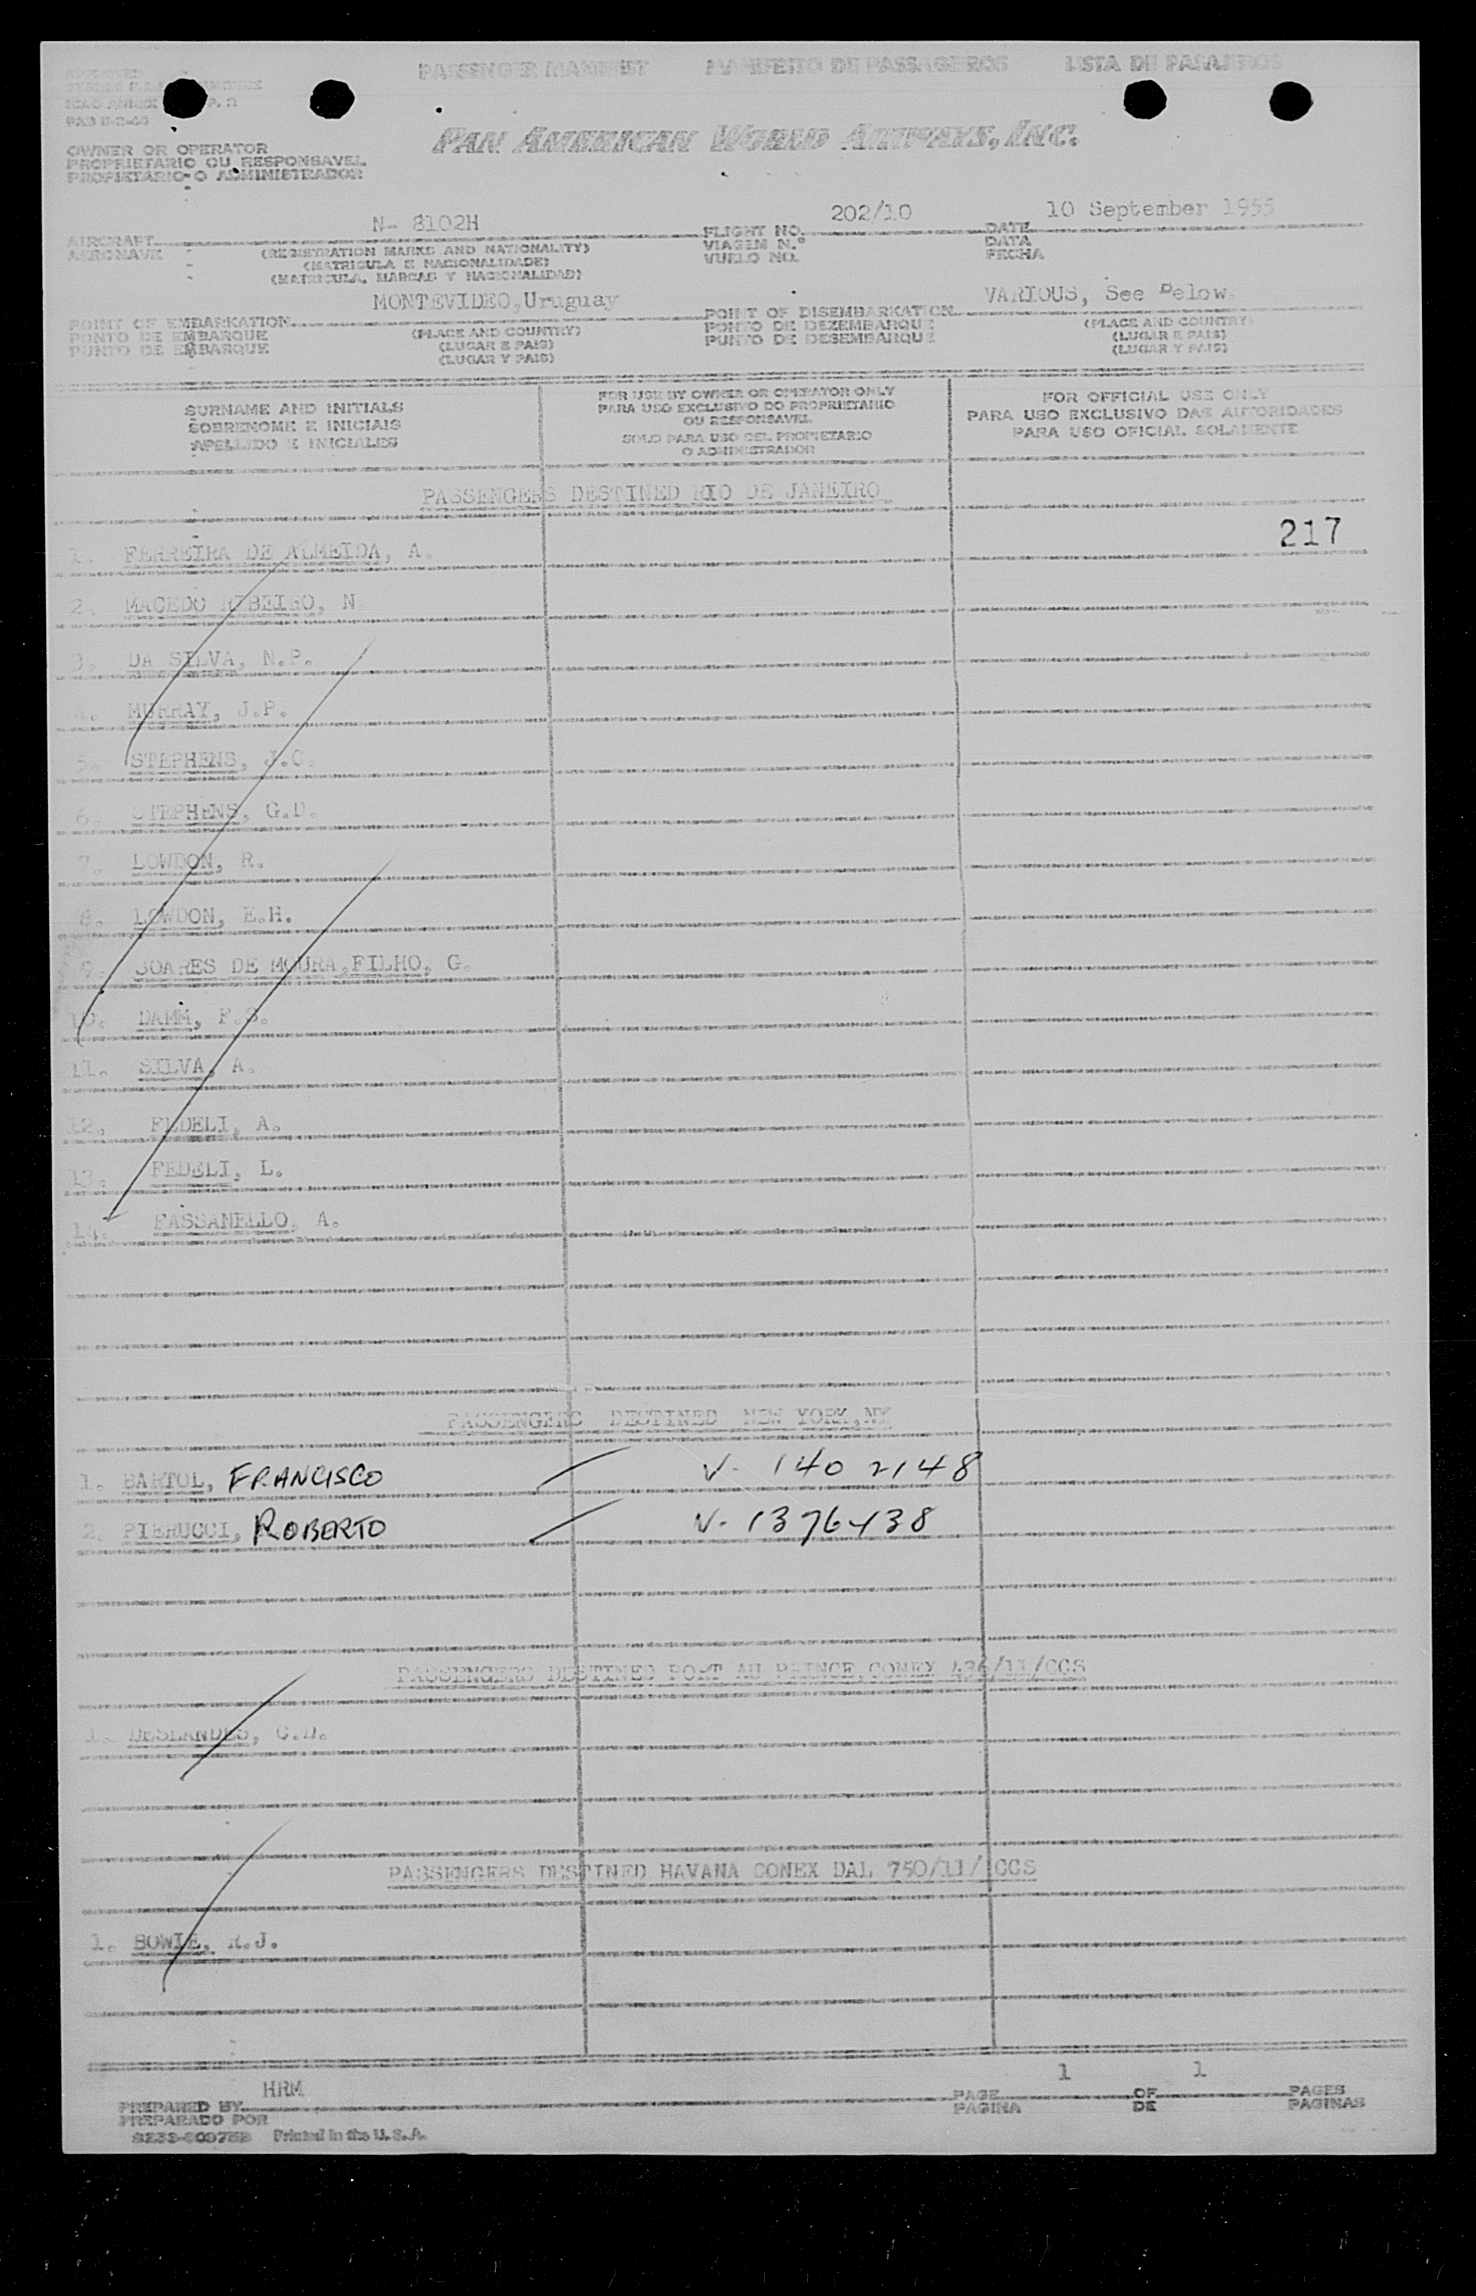 PASSENGER MANIFEST MANIFESTO DE PASSAGEIROS LISTA DE PASAJEROS
PAN AMERICAN WORLD AIRWAYS, INC.
OWNER OR OPERATOR
PROPRIETARIO OU RESPONSAVEL
PROPIETARIO O ADMINISTRADOR
AIRCRAFT N- 8102H FLIGHT NO. 202/10 DATE 10 September 1955
AERONAVE (REGISTRATION MARKS AND NATIONALITY) VIAGEM N.º DATA
(MATRICULA E NACIONALIDADE) VUELO NO. FECHA
(MATRICULA, MARCAS Y NACIONALIDAD)
POINT OF EMBARKATION MONTEVIDEO, Uruguay POINT OF DISEMBARKATION VARIOUS, See Below.
PONTO DE EMBARQUE (PLACE AND COUNTRY) PONTO DE DEZEMBARQUE (PLACE AND COUNTRY)
PUNTO DE EMBARQUE (LUGAR E PAIS) PUNTO DE DESEMBARQUE (LUGAR E PAIS)
(LUGAR Y PAIS) (LUGAR Y PAIS)
SURNAME AND INITIALS
SOBRENOME E INICIAIS
APELLIDO E INICIALES
FOR USE BY OWNER OR OPERATOR ONLY
PARA USO EXCLUSIVO DO PROPRIETARIO
OU RESPONSAVEL
SOLO PARA USO DEL PROPIETARIO
O ADMINISTRADOR
FOR OFFICIAL USE ONLY
PARA USO EXCLUSIVO DAS AUTORIDADES
PARA USO OFICIAL SOLAMENTE
PASSENGERS DESTINED RIO DE JANEIRO
217
1. FERREIRA DE ALMEIDA, A.
2. MACEDO RIBEIRO, N
3. DA SILVA, N.P.
4. MURRAY, J.P.
5. STEPHENS, J.C.
6. STEPHENS, G.D.
7. LOWDON, R.
8. LOWDON, E.H.
9. SOARES DE MOURA, FILHO, G.
10. DAMM, P.S.
11. SILVA, A.
12. FEDELI, A.
13. FEDELI, L.
14. FASSANELLO, A.
PASSENGERS DESTINED NEW YORK, NY
1. BARTOL, FRANCISCO V- 1402148
2. PIERUCCI, ROBERTO V- 1376438
PASSENGERS DESTINED PORT AU PRINCE, CONEX 436/11/CCS
1. DESLANDES, C.D.
PASSENGERS DESTINED HAVANA CONEX DAL 750/11/ CCS
1. BOWIE, R.J.
PREPARED BY HRM PAGE 1 OF 1 PAGES
PREPARADO POR PAGINA DE PAGINAS
Printed in the U. S. A.